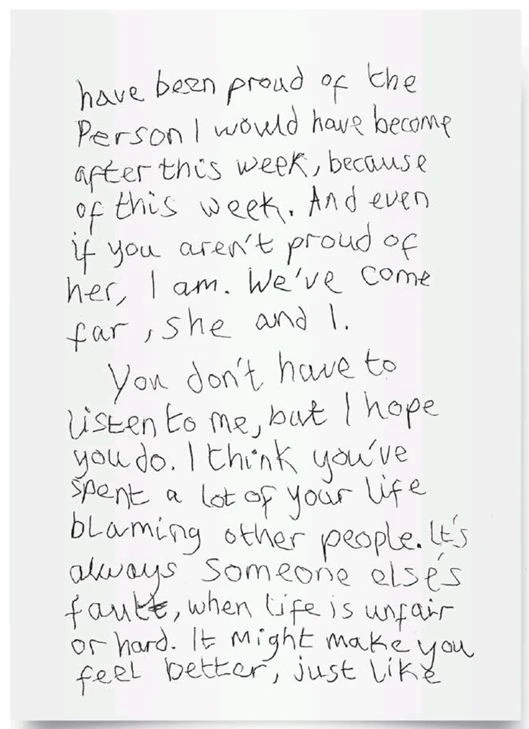 have been proud of the
Person I would have become
after this week, because
of this week. And even
if you aren't proud of
her, I am. We've come
far, she and I.
You don't have to
listen to me, but I hope
you do. I think you've
spent a lot of your life
blaming other people. It's
always someone else's
fault, when life is unfair
or hard. It might make you
feel better, just like